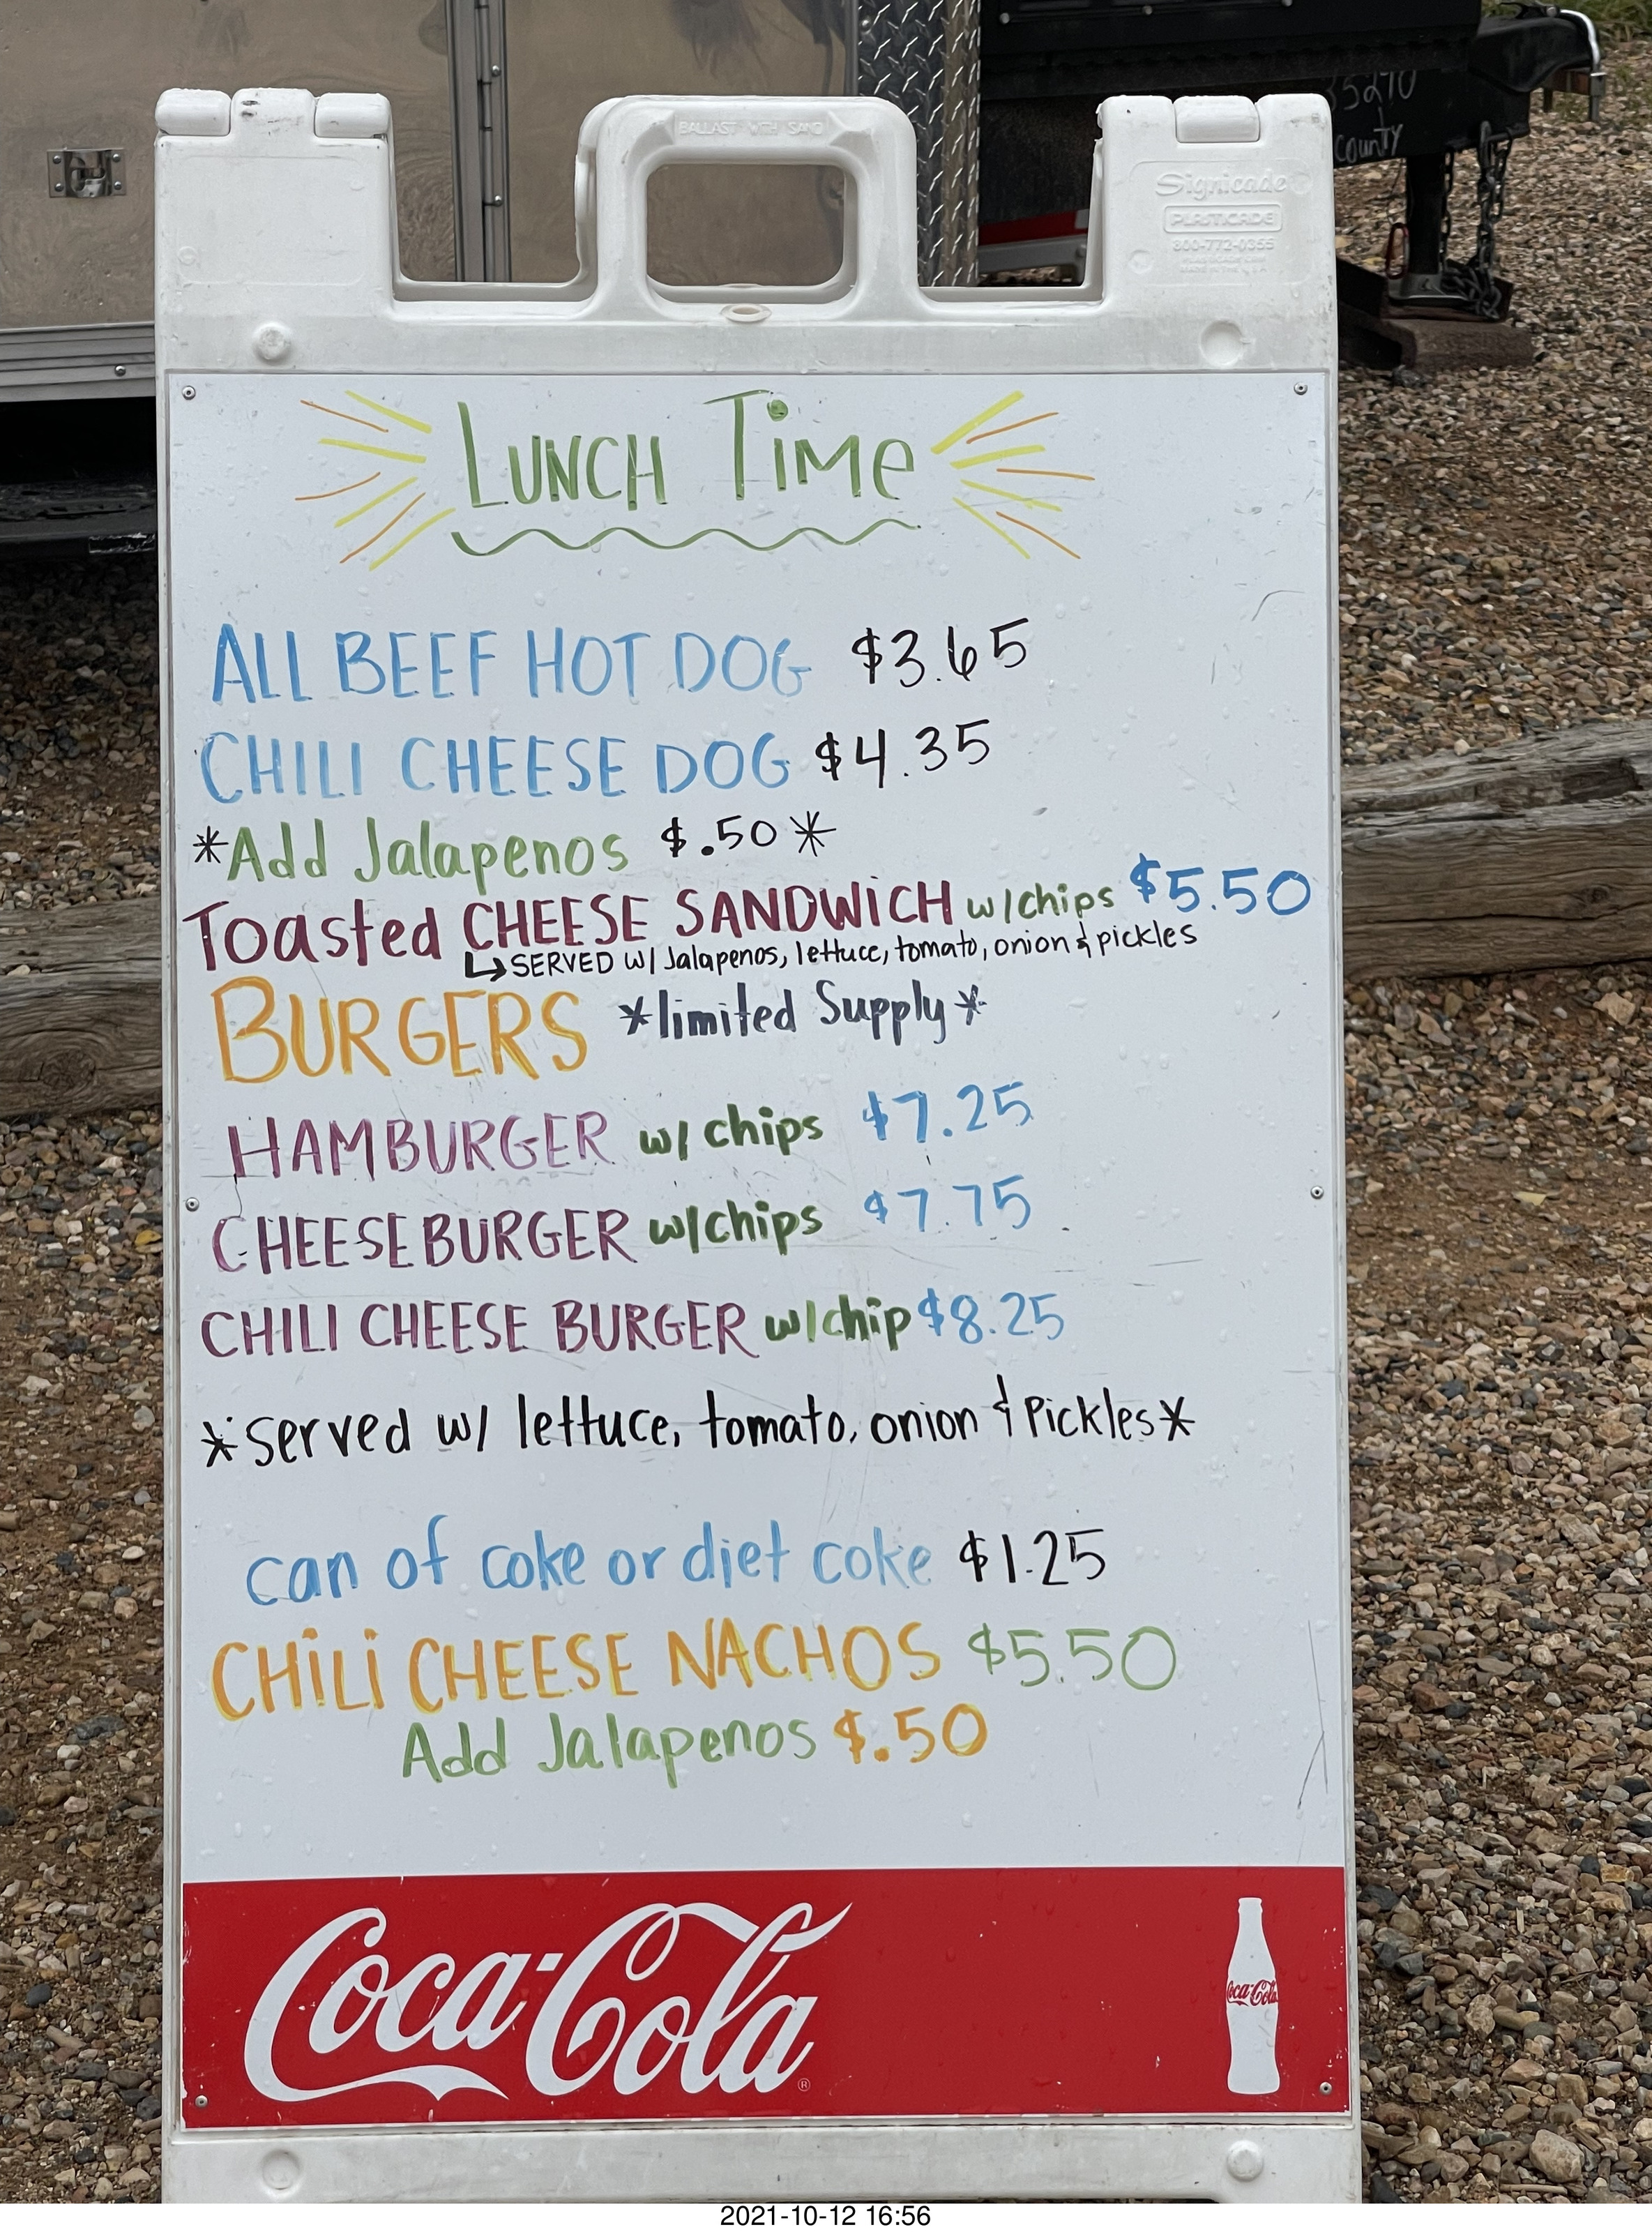 BALLAST WITH SAND
35270
county
Signicade
PLASTICADE
800-772-0355
MADE IN THE U.S.A
LUNCH TiMe
ALL BEEF HOT DOG $3.65
CHILI CHEESE DOG $4.35
*Add Jalapenos $.50*
Toasted CHEESE SANDWiCH w/chips $5.50
↳SERVED w/ Jalapenos, lettuce, tomato, onion & pickles
BURGERS *limited Supply*
HAMBURGER w/ chips $7.25
CHEESEBURGER w/chips $7.75
CHILI CHEESE BURGER w/chip $8.25
*Served w/ lettuce, tomato, onion & Pickles*
can of coke or diet coke $1.25
CHiLi CHEESE NACHOS $5.50
Add Jalapenos $.50
Coca-Cola ®
Coca-Cola
2021-10-12 16:56